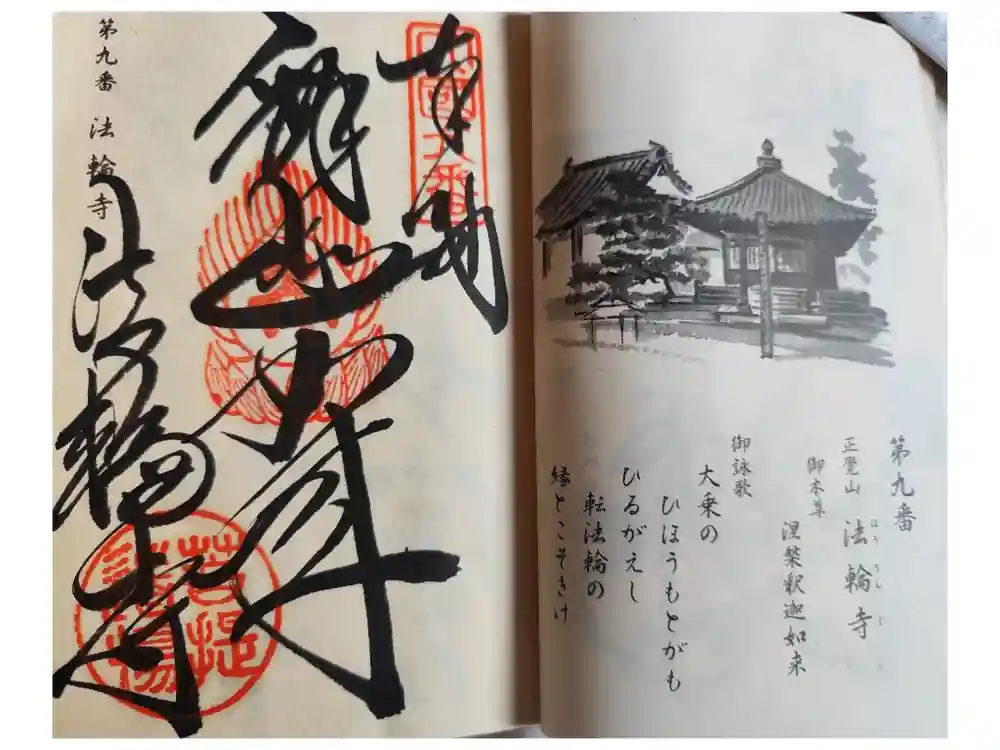 第九番
正覺山 法輪寺
ほうりんじ
御本尊
涅槃釈迦如来
御詠歌
大乗の
ひほうもとがも
ひるがえし
転法輪の
縁とこそきけ
奉納
法輪寺
第九番 法輪寺
菩提
道場